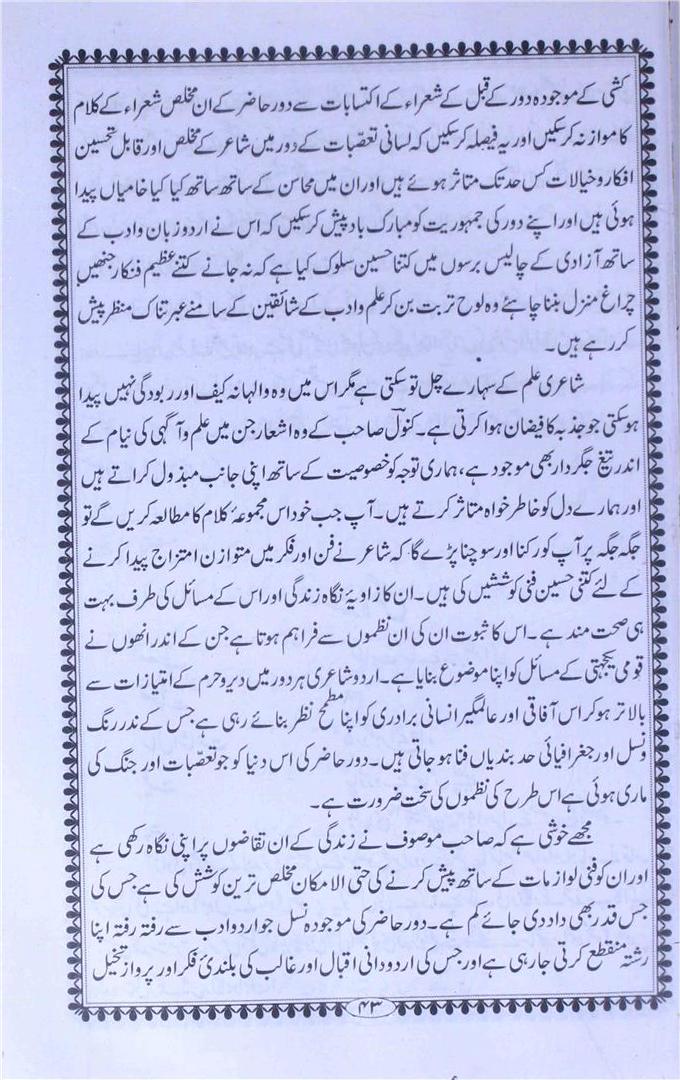 کشی کے موجودہ دور کے قبل کے شعراء کے اکتسابات سے دور حاضر کے ان مخلص شعراء کے کلام
کا موازنہ کرسکیں اور یہ فیصلہ کرسکیں کہ لسانی تعصّبات کے دور میں شاعر کے مخلص اور قابل تحسین
افکار و خیالات کس حد تک متاثر ہوئے ہیں اور ان میں محاسن کے ساتھ ساتھ کیا کیا خامیاں پیدا
ہوئی ہیں اور اپنے دور کی جمہوریت کو مبارک باد پیش کرسکیں کہ اس نے اردو زبان و ادب کے
ساتھ آزادی کے چالیس برسوں میں کتنا حسین سلوک کیا ہے کہ نہ جانے کتنے عظیم فنکار جنھیں
چراغ منزل بننا چاہئے وہ لوح تربت بن کر علم و ادب کے شائقین کے سامنے عبرتناک منظر پیش
کررہے ہیں۔
شاعری علم کے سہارے چل تو سکتی ہے مگر اس میں وہ والہانہ کیف اور ربودگی نہیں پیدا
ہوسکتی جو جذبہ کا فیضان ہوا کرتی ہے۔ کنولؔ صاحب کے وہ اشعار جن میں علم و آگہی کی نیام کے
اندر تیغ جگر دار بھی موجود ہے، ہماری توجہ کو خصوصیت کے ساتھ اپنی جانب مبذول کراتے ہیں
اور ہمارے دل کو خاطر خواہ متاثر کرتے ہیں۔ آپ جب خود اس مجموعۂ کلام کا مطالعہ کریں گے تو
جگہ جگہ پر آپ کو رکنا اور سوچنا پڑے گا کہ شاعر نے فن اور فکر میں متوازن امتزاج پیدا کرنے
کے لئے کتنی حسین فنی کوششیں کی ہیں۔ ان کا زاویۂ نگاہ زندگی اور اس کے مسائل کی طرف بہت
ہی صحت مند ہے۔ اس کا ثبوت ان کی ان نظموں سے فراہم ہوتا ہے جن کے اندر انھوں نے
قومی یکجہتی کے مسائل کو اپنا موضوع بنایا ہے۔ اردو شاعری ہر دور میں دیر و حرم کے امتیازات سے
بالاتر ہوکر اس آفاقی اور عالمگیر انسانی برادری کو اپنا مطمح نظر بنائے رہی ہے جس کے ندر رنگ
و نسل اور جغرافیائی حد بندیاں فنا ہوجاتی ہیں۔ دور حاضر کی اس دنیا کو جو تعصبات اور جنگ کی
ماری ہوئی ہے اس طرح کی نظموں کی سخت ضرورت ہے۔
مجھے خوشی ہے کہ صاحب موصوف نے زندگی کے ان تقاضوں پر اپنی نگاہ رکھی ہے
اور ان کو فنی لوازمات کے ساتھ پیش کرنے کی حتی الامکان مخلص ترین کوشش کی ہے جس کی
جس قدر بھی داد دی جائے کم ہے۔ دور حاضر کی موجودہ نسل جو اردو ادب سے رفتہ رفتہ اپنا
رشتہ منقطع کرتی جارہی ہے اور جس کی اردو دانی اقبال اور غالب کی بلندیٔ فکر اور پرواز تخیل
۴۳